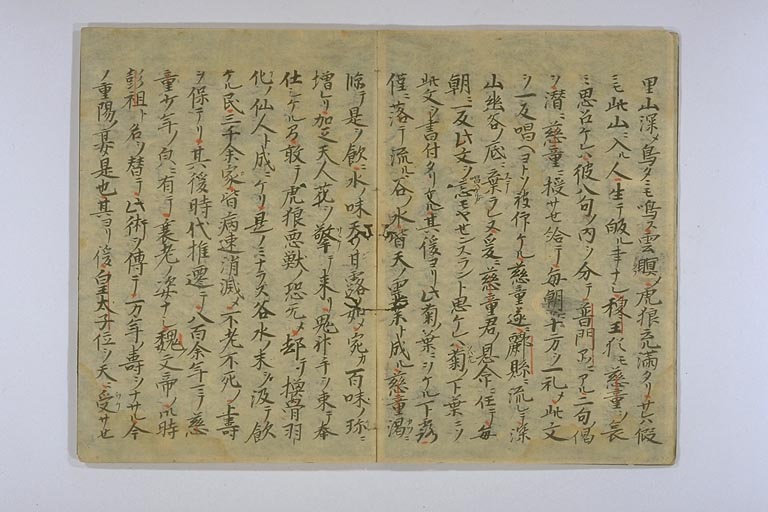 里山深〆鳥タニモ鳴ス雲瞑〆虎狼充満タリサレハ假
ニモ此山ニ入ル人生テ皈ル事ナシ穆王猶モ慈童ヲ哀
ミ思召ケレハ彼八句ノ内ヲ分テ普門品ニアル二句ノ偈
ヲ潜ニ慈童ニ授サセ給テ毎朝十方ヲ一礼〆此文
ヲ一反唱ヘヨトソ被仰ケル慈童遂ニ酈縣ニ流レテ深
山幽谷ノ底ニ棄ラレヌ爰ニ慈童君ノ恩命ニ任テ毎
朝ニ一反此文ノ忘モヤセンスラント思ケレハ菊ノ下葉ニソ
此文ヲ書付タリケル其後ヨリ此菊ノ葉ニヲケル下露
僅ニ落テ流ル谷ノ水皆天ノ霊薬ト成ル慈童渇ニ
臨テ是ヲ飲ニ水ノ味天ノ甘露ノ如〆宛カ百味ノ珎ニ
増レリ加之天人花ヲ擎テ来リ鬼神手ヲ束テ奉
仕シケル間敢テ虎狼悪獣ノ恐无〆却テ換骨羽
化ノ仙人ト成ニケリ是ノミナラス谷水ノ末ヲ汲テ飲
ケル民三千余家皆病速消滅〆不老不死ノ上壽
ヲ保テリ其後時代推遷テ八百余年ニテ慈
童少年ノ皃ニ有テ衰老ノ姿ナシ魏文帝ノ御時
彭祖ト名ヲ替テ此術ヲ傳テ万年ノ壽ヲナサル今
ノ重陽ノ宴是也其ヨリ後皇太子位ヲ天ニ受サセ